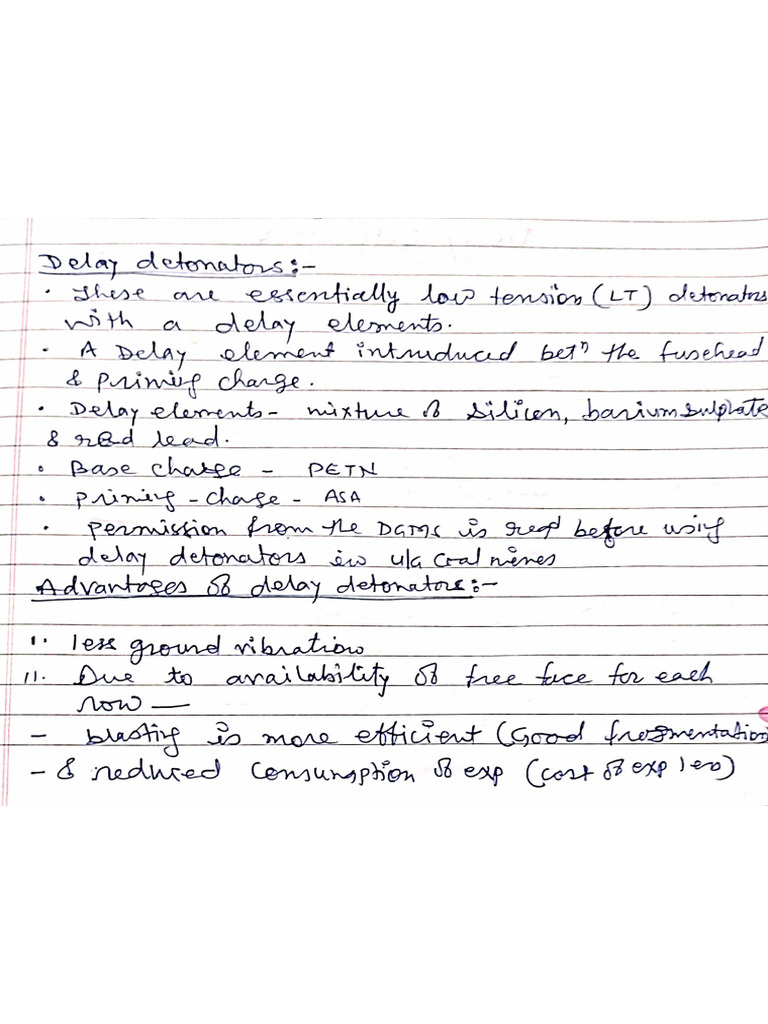 Delay detonators:-
• These are essentially low tension (LT) detonators
with a delay elements.
• A Delay element introduced betn the fusehead
& priming charge.
• Delay elements - mixture of silicon, barium sulphate
& red lead.
• Base charge - PETN
• Priming - charge - ASA
• permission from the DGMS is reqd before using
delay detonators in u/g coal mines
Advantages of delay detonators:-
1. less ground vibration
11. Due to availability of free face for each
row —
- blasting is more efficient (Good fragmentation
- & reduced consumption of exp (cost of exp less)